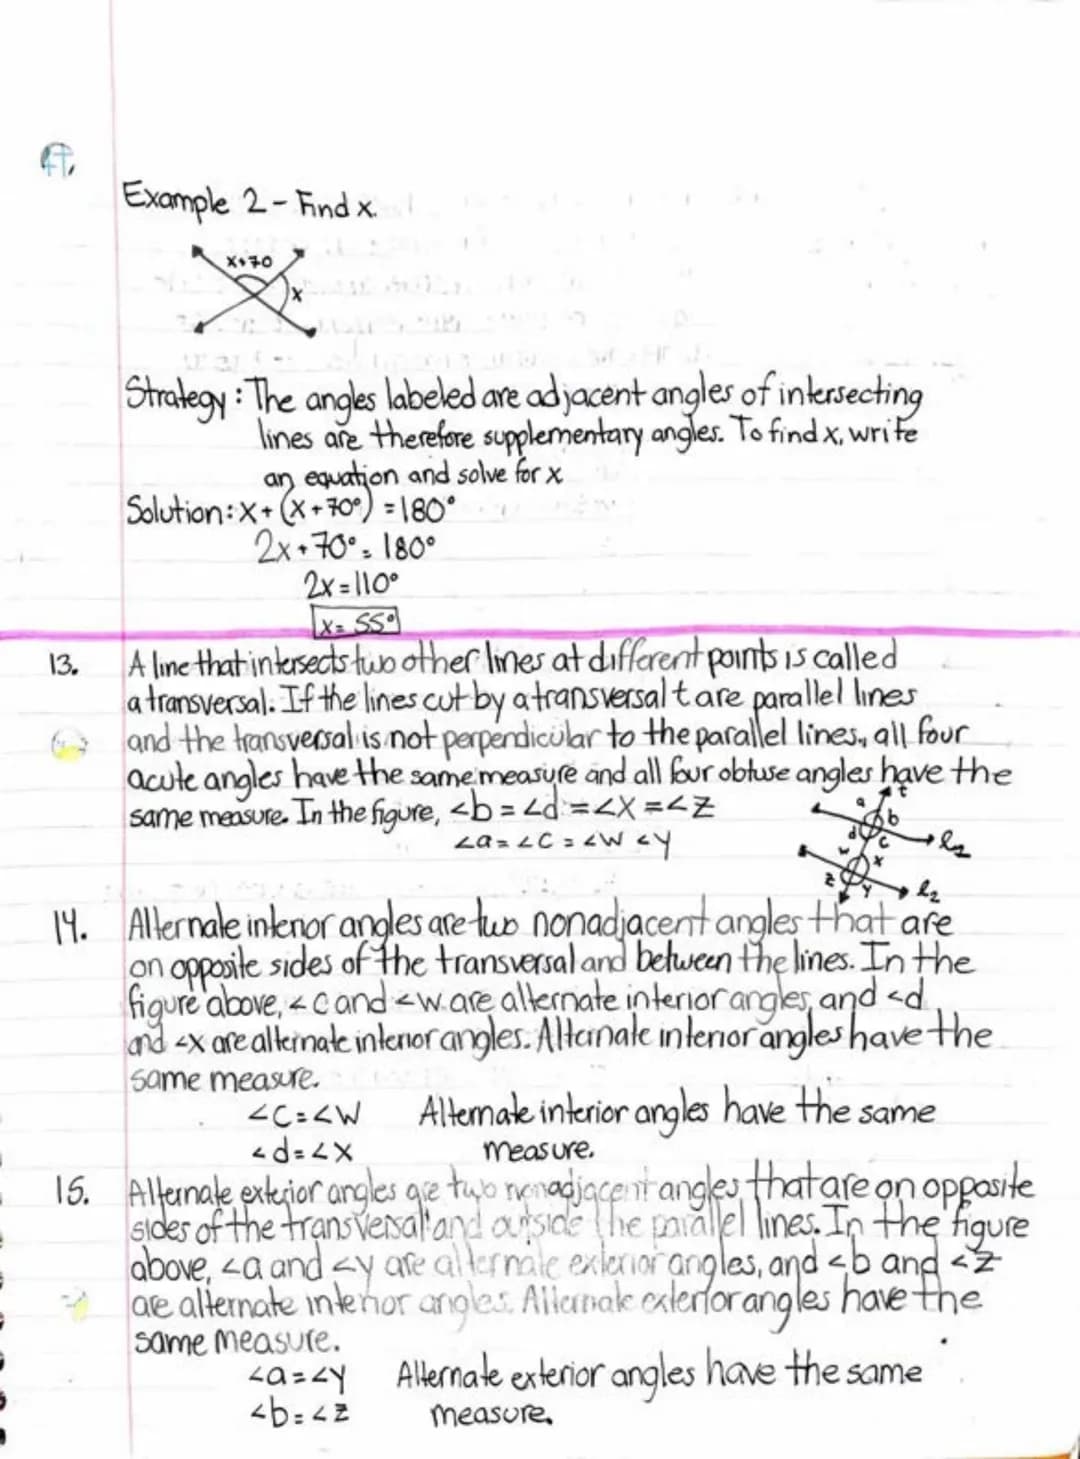 Example 2 - Find x.
x+70
x
Strategy: The angles labeled are adjacent angles of intersecting
lines are therefore supplementary angles. To find x, write
an equation and solve for x
Solution: x + (x + 70°) = 180°
2x + 70° = 180°
2x = 110°
x = 55°
13. A line that intersects two other lines at different points is called
a transversal. If the lines cut by a transversal t are parallel lines
and the transversal is not perpendicular to the parallel lines, all four
acute angles have the same measure and all four obtuse angles have the
same measure. In the figure, <b = <d = <x = <z
<a = <c = <w <y
t
a
b
d
c
l2
w
x
z
y
l2
14. Alternate interior angles are two nonadjacent angles that are
on opposite sides of the transversal and between the lines. In the
figure above, <c and <w are alternate interior angles, and <d
and <x are alternate interior angles. Alternate interior angles have the
same measure.
<c = <w Alternate interior angles have the same
<d = <x measure.
15. Alternate exterior angles are two nonadjacent angles that are on opposite
sides of the transversal and outside the parallel lines. In the figure
above, <a and <y are alternate exterior angles, and <b and <z
are alternate interior angles. Alternate exterior angles have the
same measure.
<a = <y Alternate exterior angles have the same
<b = <z measure.